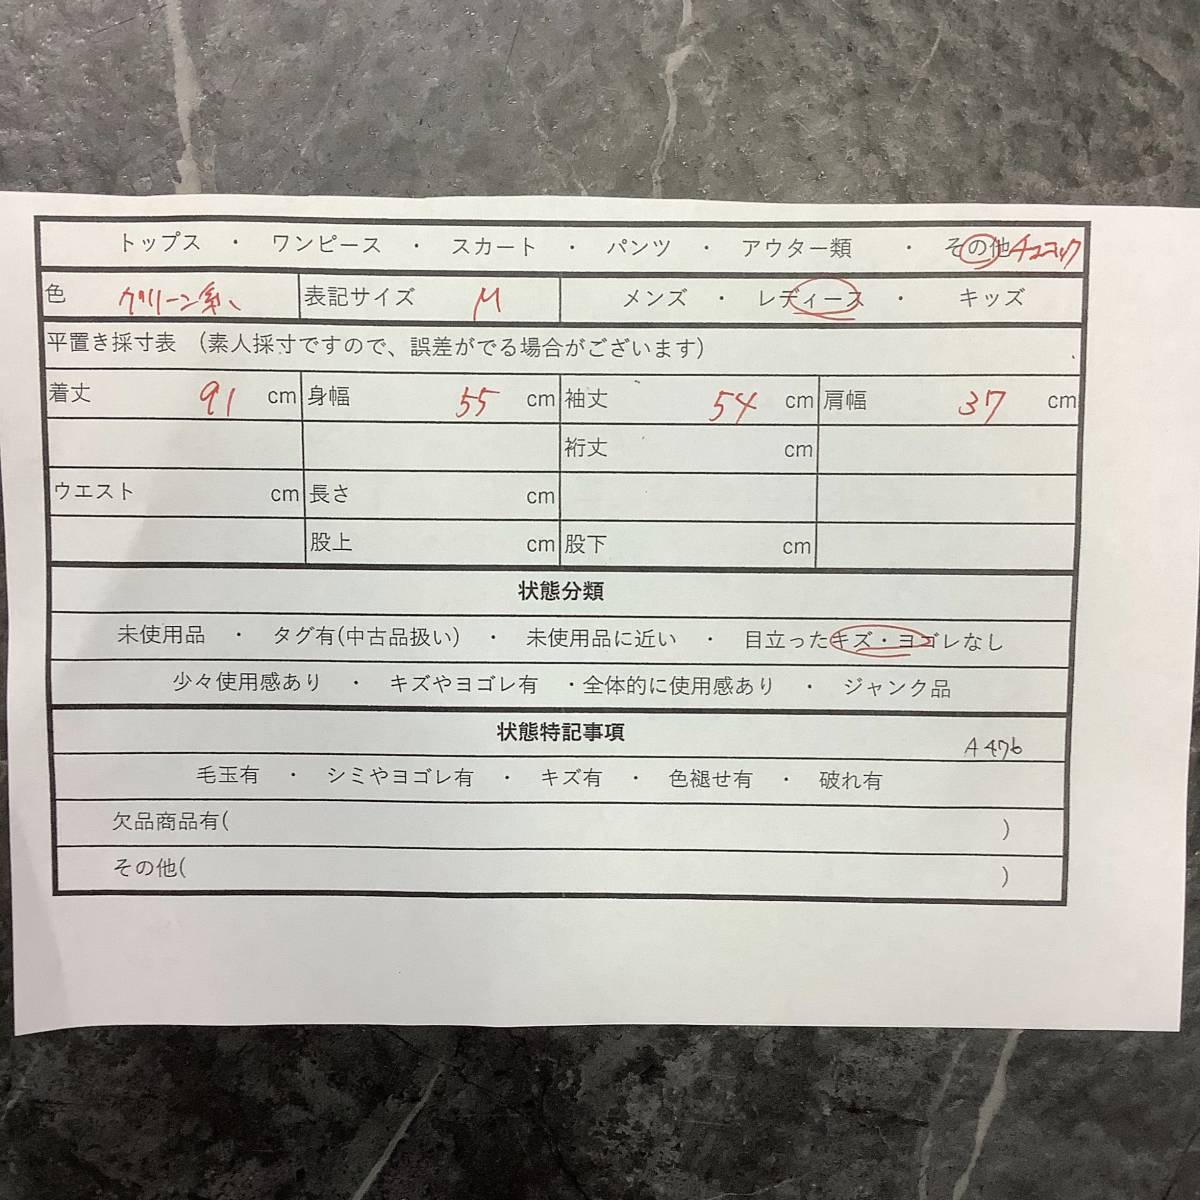 トップス ・ ワンピース ・ スカート ・ パンツ ・ アウター類 ・ その他 チュニック
色 グリーン系 表記サイズ M メンズ ・ レディース ・ キッズ
平置き採寸表 （素人採寸ですので、誤差がでる場合がございます）
着丈 91 cm 身幅 55 cm 袖丈 54 cm 肩幅 37 cm
裄丈 cm
ウエスト cm 長さ cm
股上 cm 股下 cm
状態分類
未使用品 ・ タグ有(中古品扱い) ・ 未使用品に近い ・ 目立ったキズ・ヨゴレなし
少々使用感あり ・ キズやヨゴレ有 ・全体的に使用感あり ・ ジャンク品
状態特記事項 A476
毛玉有 ・ シミやヨゴレ有 ・ キズ有 ・ 色褪せ有 ・ 破れ有
欠品商品有( )
その他( )